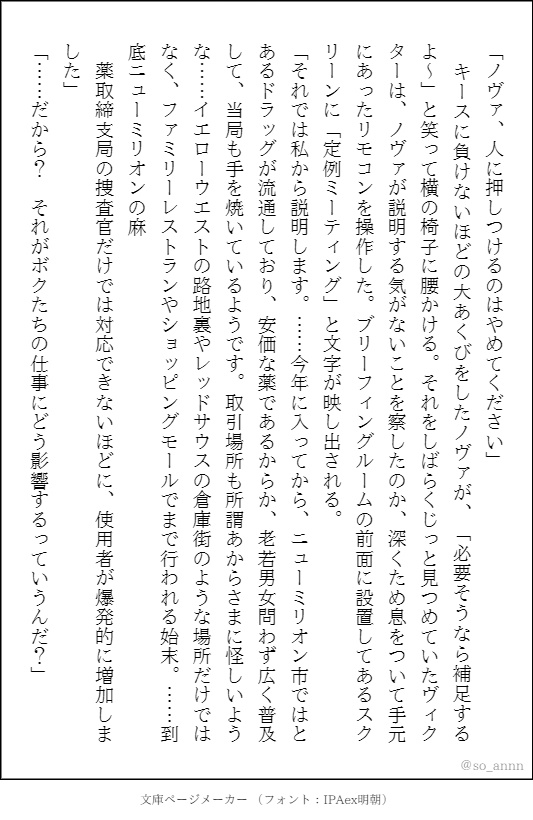 「ノヴァ、人に押しつけるのはやめてください」
　キースに負けないほどの大あくびをしたノヴァが、「必要そうなら補足する
よ～」と笑って横の椅子に腰かける。それをしばらくじっと見つめていたヴィク
ターは、ノヴァが説明する気がないことを察したのか、深くため息をついて手元
にあったリモコンを操作した。ブリーフィングルームの前面に設置してあるスク
リーンに「定例ミーティング」と文字が映し出される。
「それでは私から説明します。……今年に入ってから、ニューミリオン市ではと
あるドラッグが流通しており、安価な薬であるからか、老若男女問わず広く普及
して、当局も手を焼いているようです。取引場所も所謂あからさまに怪しいよう
な……イエローウエストの路地裏やレッドサウスの倉庫街のような場所だけでは
なく、ファミリーレストランやショッピングモールでまで行われる始末。……到
底ニューミリオンの麻
　薬取締支局の捜査官だけでは対応できないほどに、使用者が爆発的に増加しま
した」
「……だから？　それがボクたちの仕事にどう影響するっていうんだ？」
@so_annn
文庫ページメーカー （フォント：IPAex明朝）